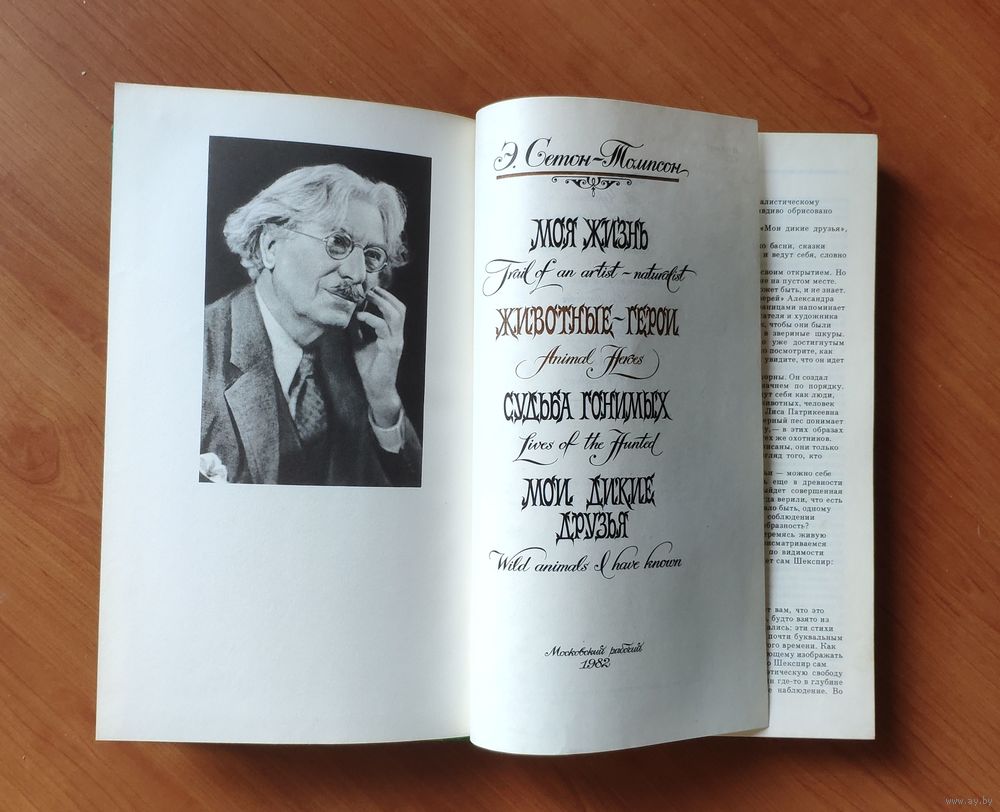 Э. Сетон-Томпсон
МОЯ ЖИЗНЬ
Trail of an artist-naturalist
ЖИВОТНЫЕ-ГЕРОИ
Animal Heroes
СУДЬБА ГОНИМЫХ
Lives of the Hunted
МОИ ДИКИЕ
ДРУЗЬЯ
Wild animals I have known
Московский рабочий
1982
алистическому
вдиво обрисовано
«Мои дикие друзья»,
о басни, сказки
и ведут себя, словно
своим открытием. Но
не на пустом месте.
ожет быть, и не знает.
верей» Александра
раницами напоминает
ателя и художника
к, чтобы они были
в звериные шкуры.
о уже достигнутым
но посмотрите, как
увидите, что он идет
орны. Он создал
начнем по порядку.
дут себя как люди,
животных, человек
Лиса Патрикеевна
ерный пес понимает
у,— в этих образах
тех же охотников.
исаны, они только
гляд того, кто
ки — можно себе
ь, еще в древности
ыйдет совершенная
да верили, что есть
ало быть, одному
соблюдении
образность?
еремясь живую
исматриваемся
по видимости
ет сам Шекспир:
ет вам, что это
, будто взято из
ались; эти стихи
почти буквальным
ого времени. Как
ующему изображать
о Шекспир сам
этическую свободу
н где-то в глубине
е наблюдение. Во
www.ay.by